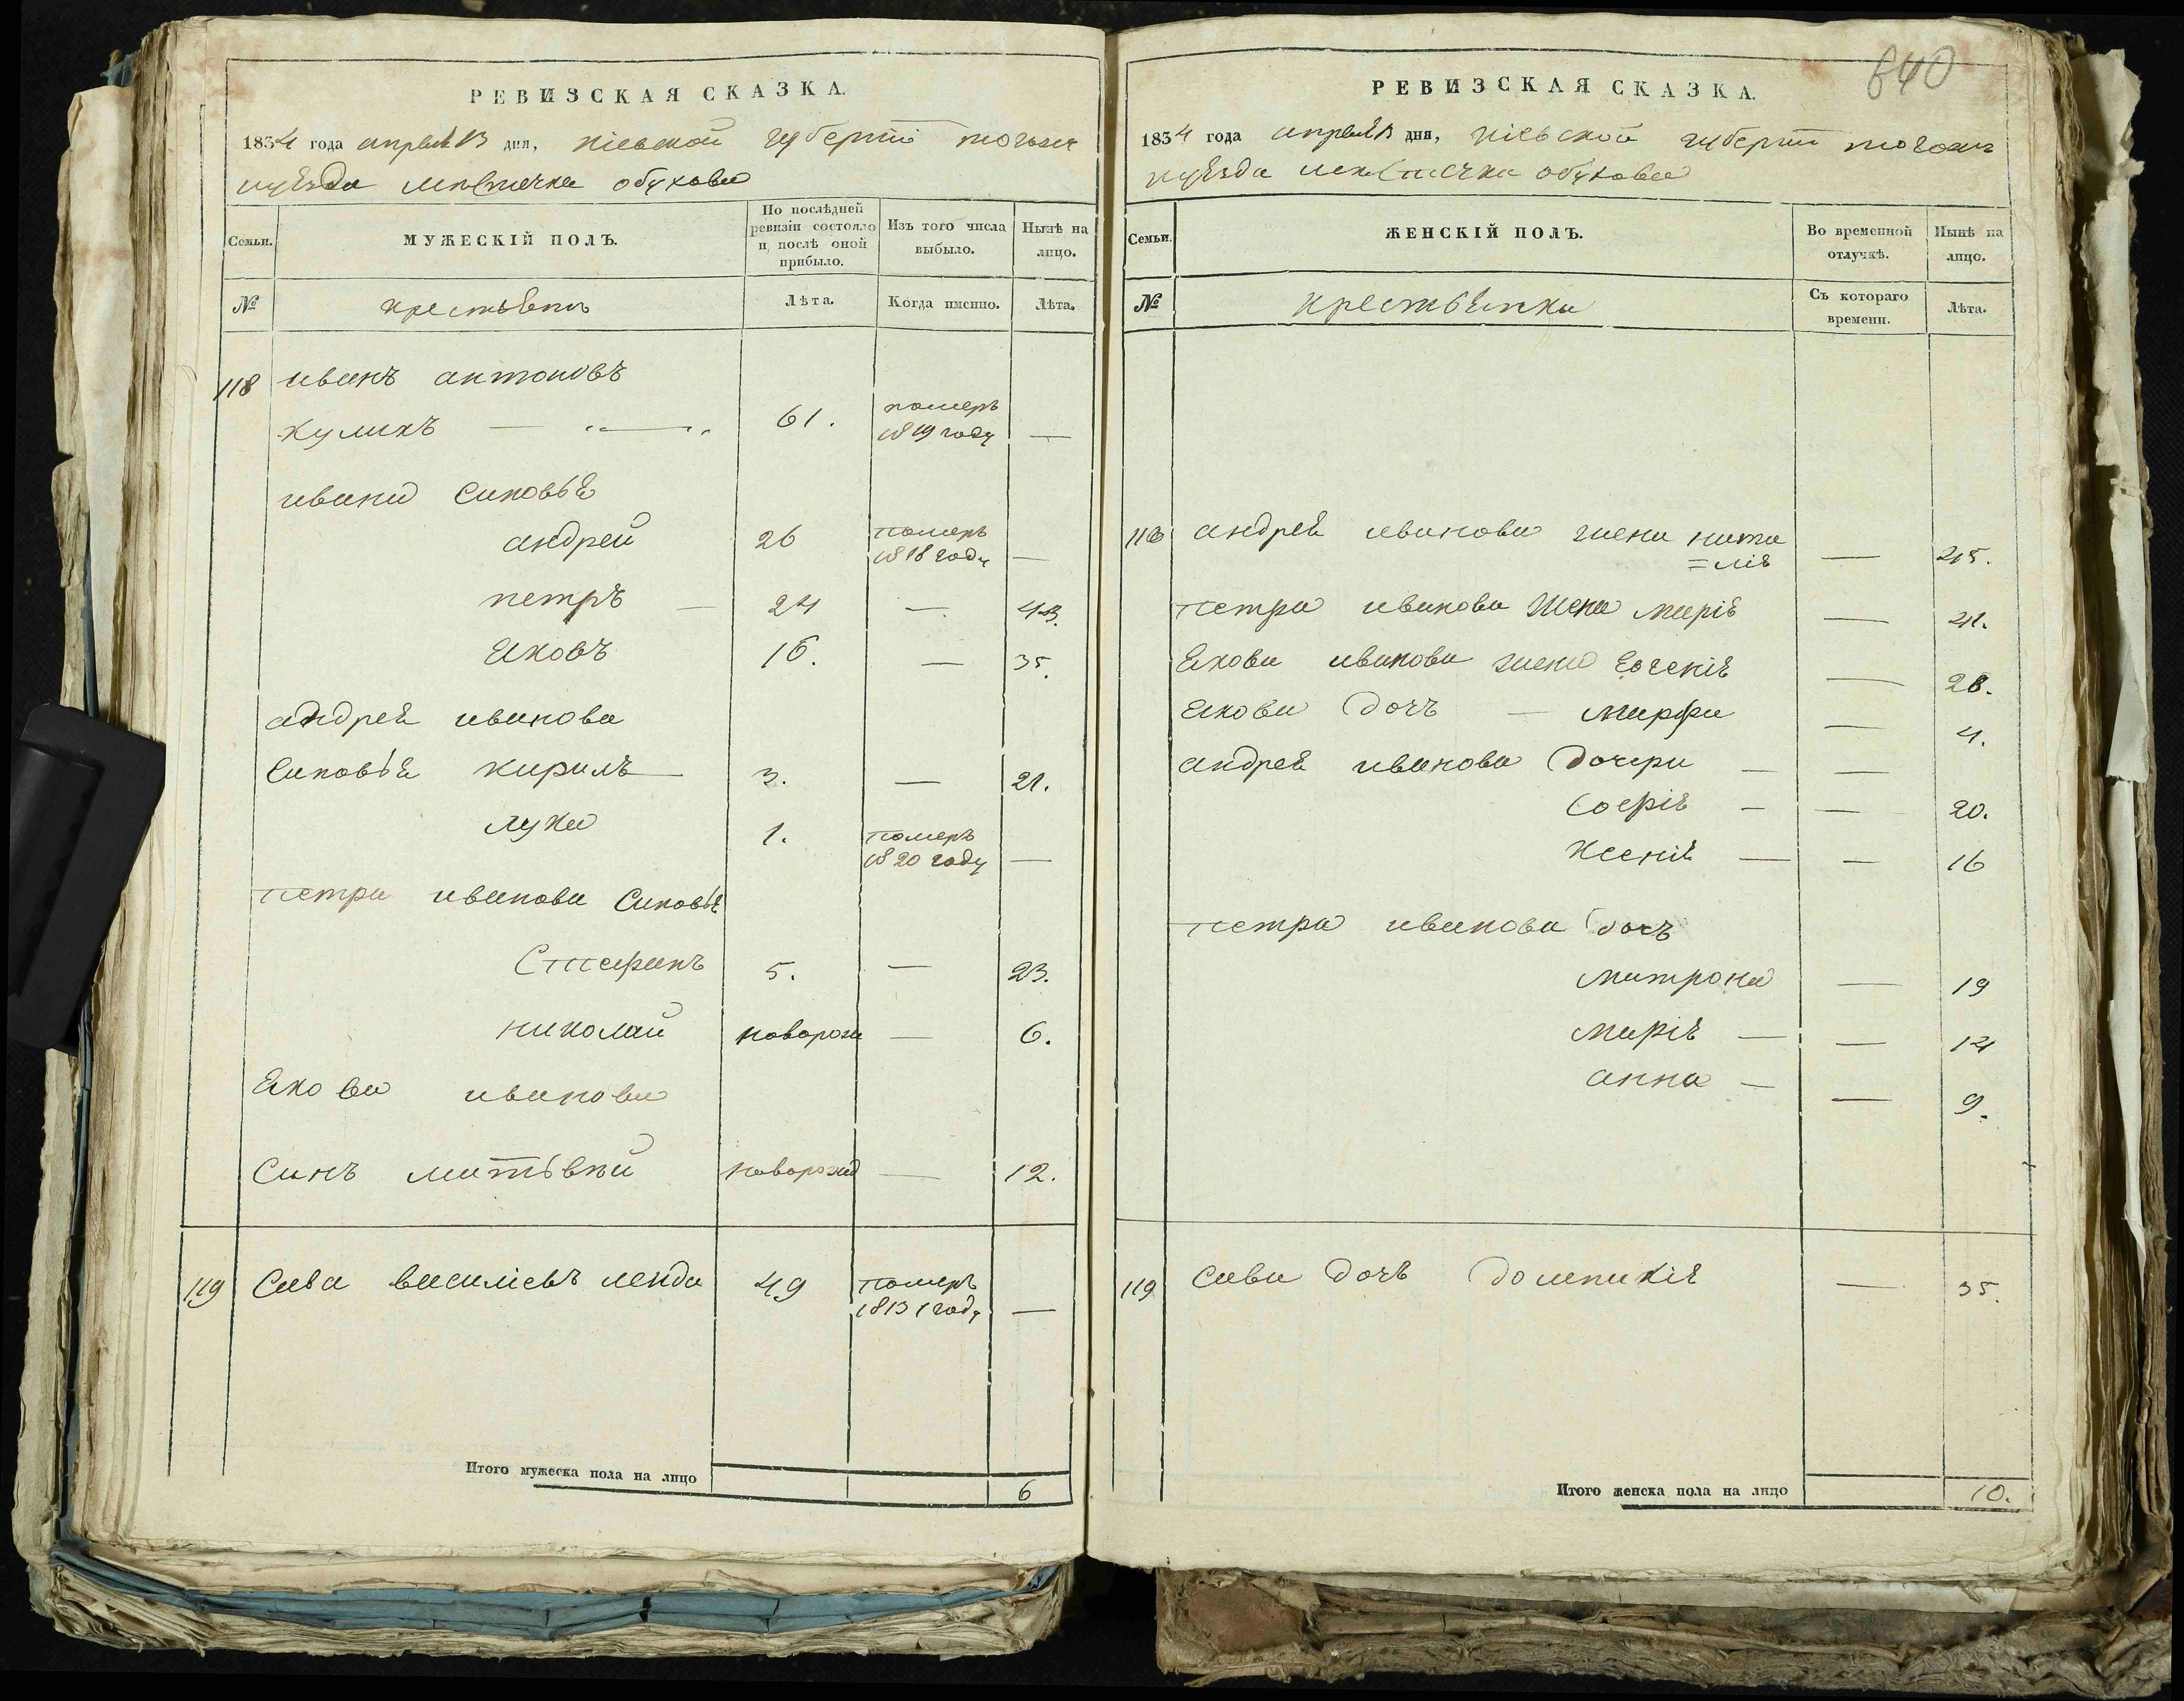 РЕВИЗСКАЯ СКАЗКА.
1834 года апреля 13 дня, кіевской губерніи тогожъ
уѣзда местечка обухова
Семьи.
МУЖЕСКІЙ ПОЛЪ.
По послѣдней ревизіи состояло и послѣ оной прибыло.
Изъ того числа выбыло.
Нынѣ на лицо.
№
крестьѣнъ
Лѣта.
Когда именно.
Лѣта.
118 иванъ антоновъ
куликъ — 61. померъ 1819 году —
ивана синовьѣ
андрей 26 померъ 1818 году —
петръ — 24 — 43.
ѣковъ 16. — 35.
андреѣ иванова
синовьѣ кирилъ 3. — 21.
лука 1. померъ 1820 году —
петра иванова синовьѣ
Стефанъ 5. — 23.
николай новорож — 6.
ѣкова иванова
синъ матьвѣй новорожд — 12.
119 Сава василіевъ 49 померъ 1831 году —
Итого мужеска пола на лицо 6
640
РЕВИЗСКАЯ СКАЗКА.
1834 года апреля 13 дня, кіевской губерніи тогожъ
уѣзда местечка обухова
Семьи.
ЖЕНСКІЙ ПОЛЪ.
Во временной отлучкѣ.
Нынѣ на лицо.
№
крестьѣнки
Съ котораго времени.
Лѣта.
118 андреѣ иванова жена ната
=ліѣ — 45.
петра иванова жена маріѣ — 41.
ѣкова иванова жена Евгеніѣ — 28.
ѣкова дочъ — марфа — 4.
андреѣ иванова дочери — —
Софіѣ — — 20.
Ксеніѣ — — 16
петра иванова дочъ
матрона — 19
маріѣ — — 14
анна — — 9.
119 савы дочъ доминикіѣ — 35.
Итого женска пола на лицо 10.